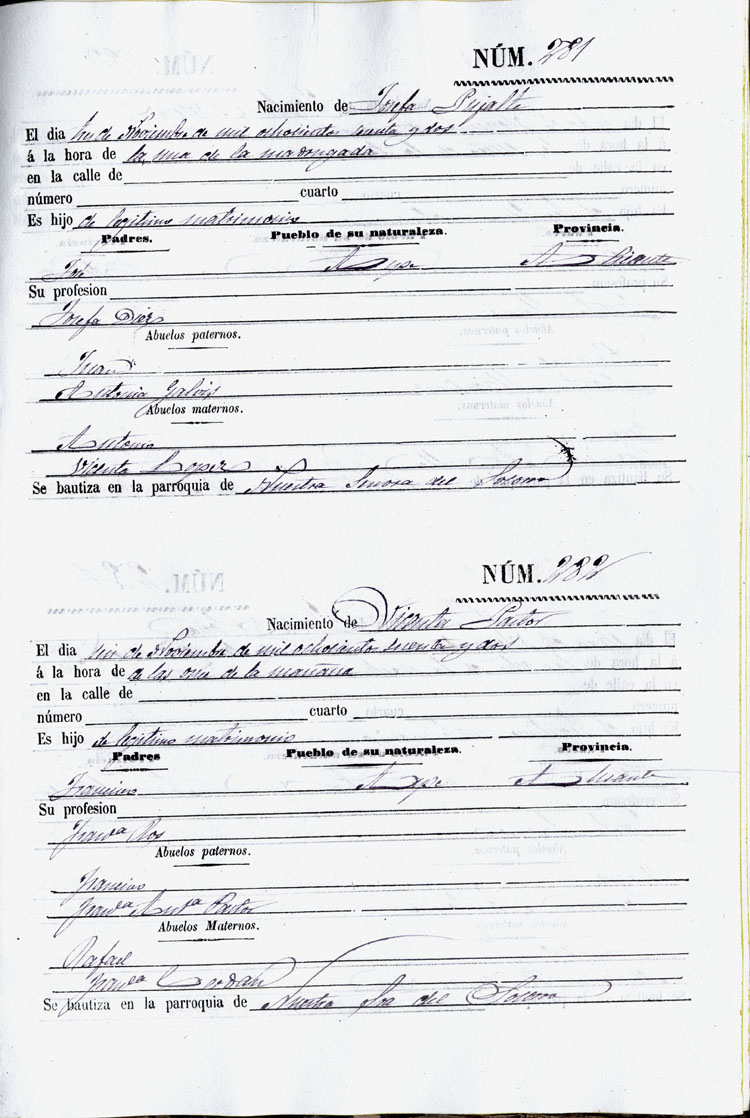 NÚM. 281
Nacimiento de Josefa Pujalte
El dia tres de Noviembre de mil ochocientos sesenta y dos
á la hora de la una de la madrugada
en la calle de
número cuarto
Es hijo de legitimo matrimonio
Padres. Pueblo de su naturaleza. Provincia.
José Aspe Alicante
Su profesion
Josefa Diez
Abuelos paternos.
Juan
Antonia Galvis
Abuelos maternos.
Antonio
Vicenta Lopez
Se bautiza en la parroquia de Nuestra Señora del Socorro
NÚM. 282
Nacimiento de Vicenta Pastor
El dia de Noviembre de mil ochocientos sesenta y dos
á la hora de a las once de la mañana
en la calle de
número cuarto
Es hijo de legitimo matrimonio
Padres Pueblo de su naturaleza. Provincia.
Francisco Aspe Alicante
Su profesion
Franca Ros
Abuelos paternos.
Francisco
Franca Anta Pastor
Abuelos Maternos.
Rafael
Franca Cerdán
Se bautiza en la parroquia de Nuestra Sra del Socorro